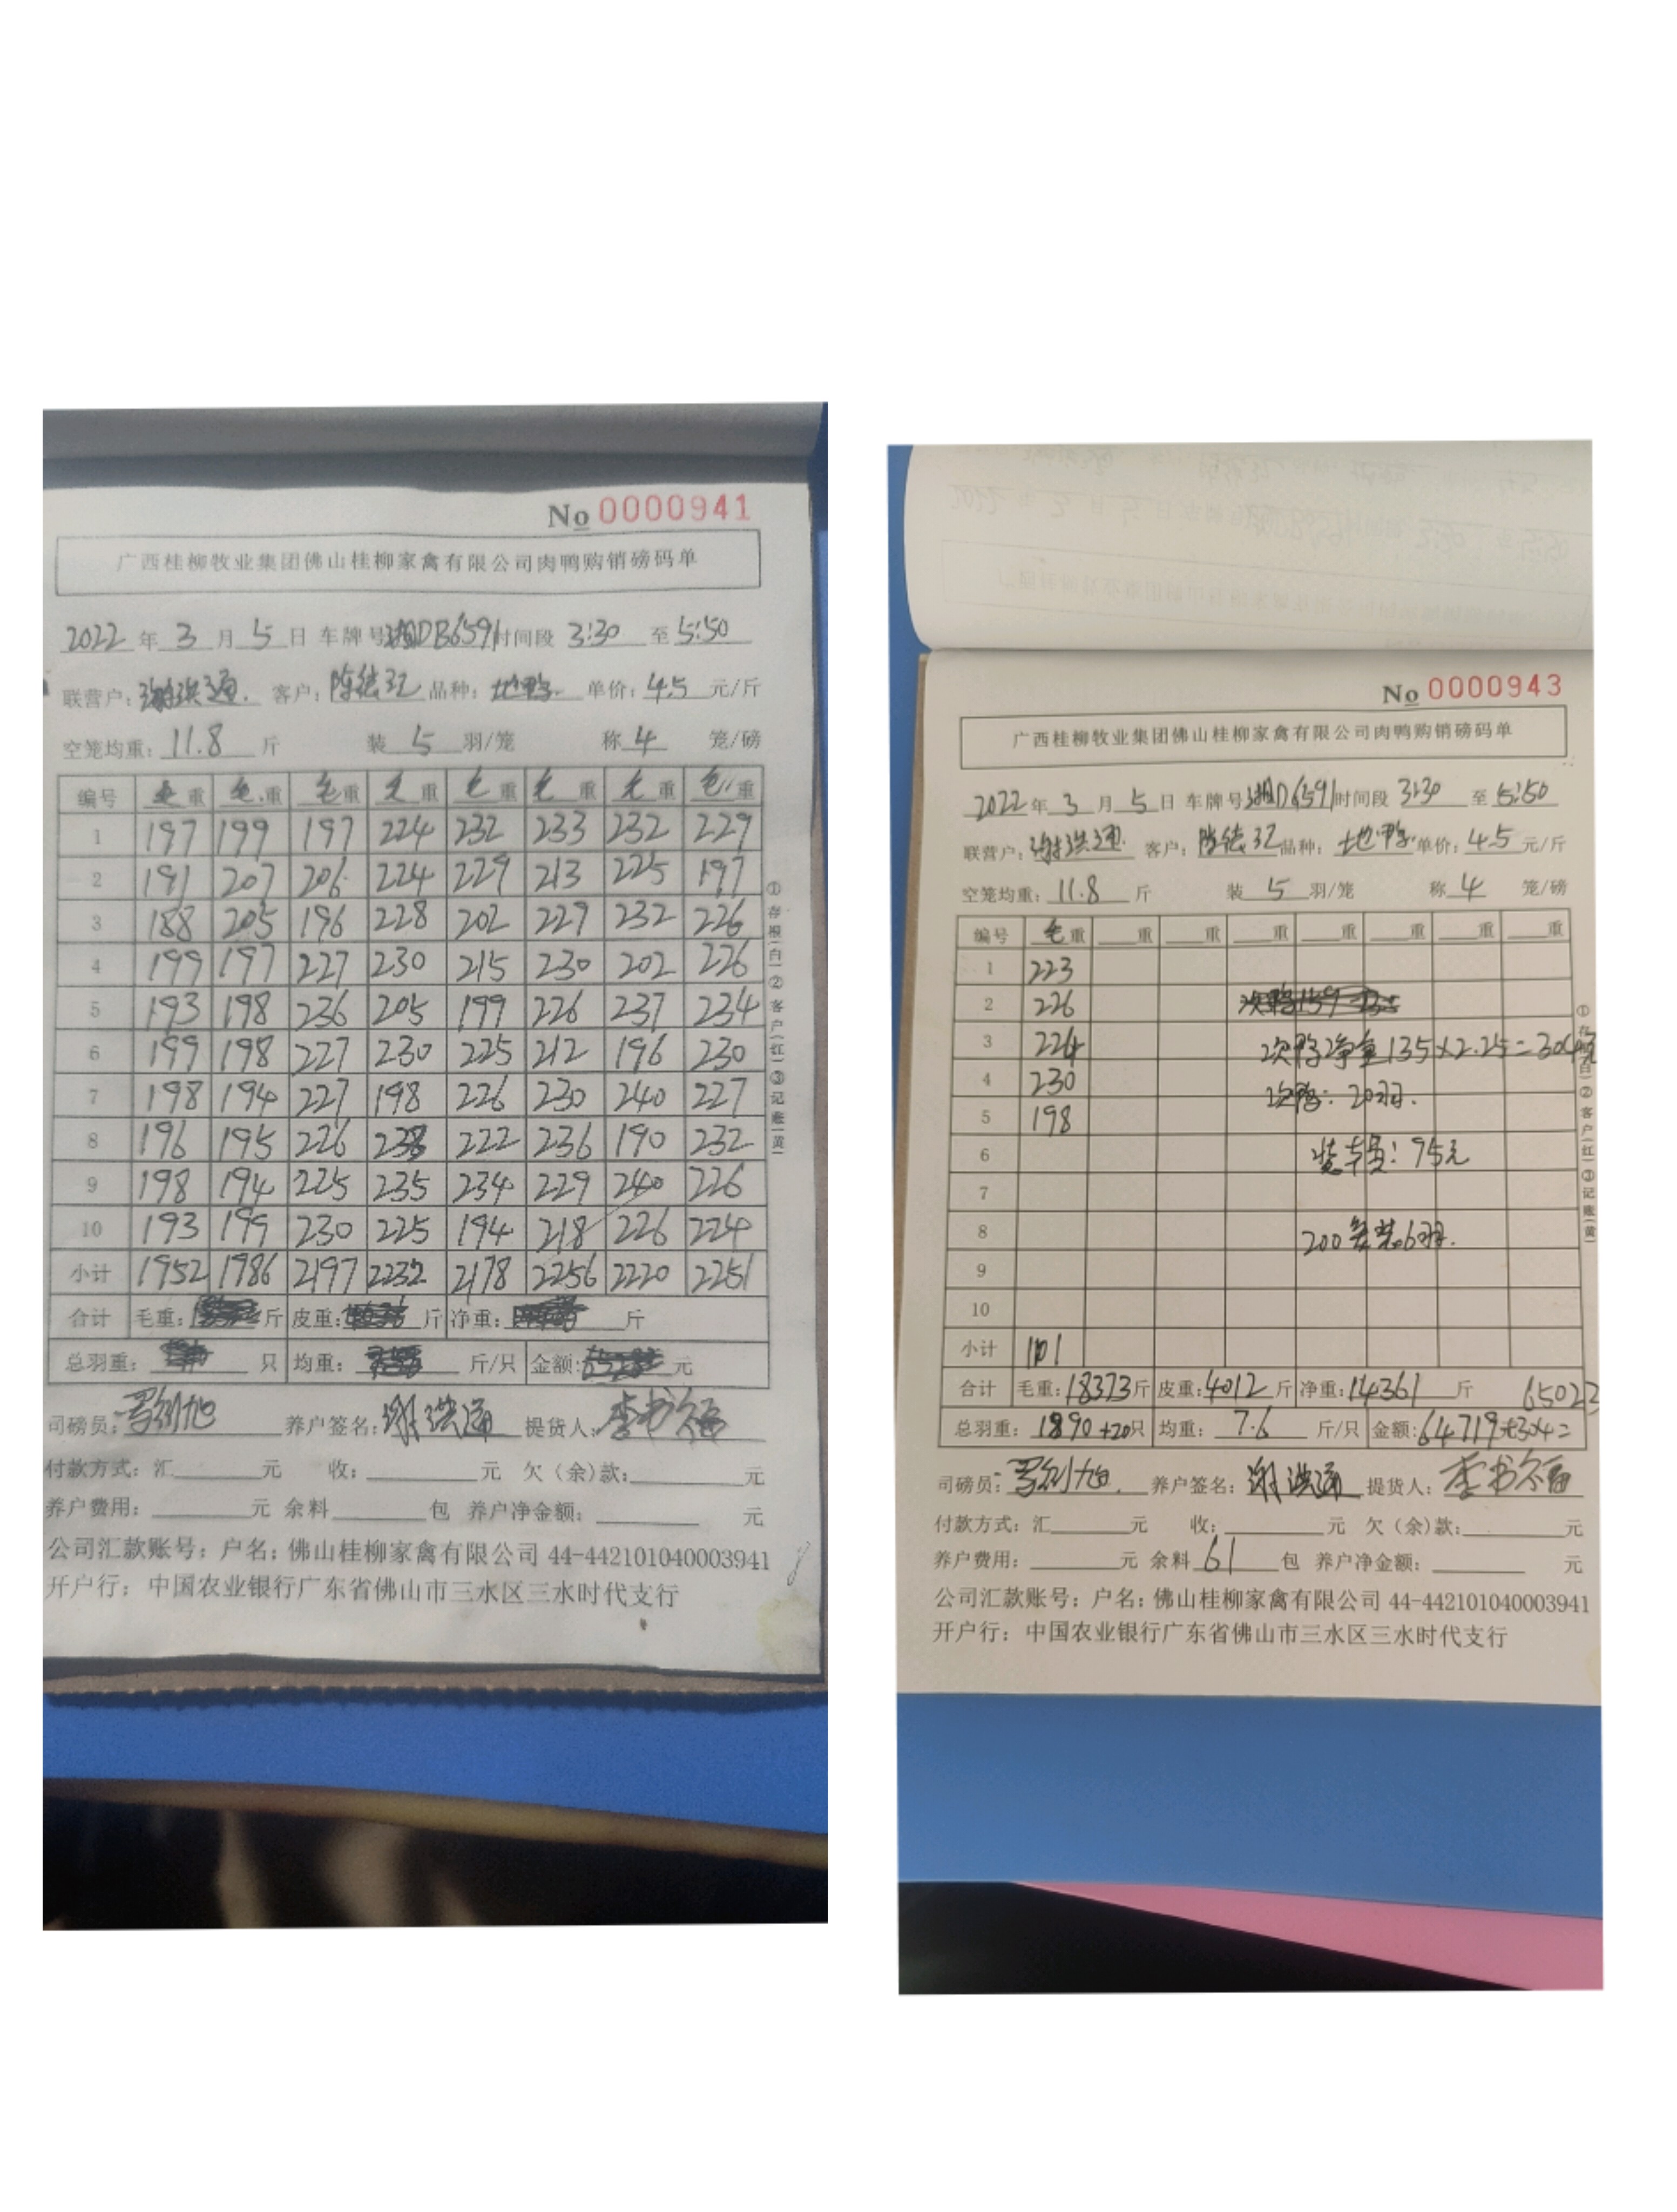 No 0000941
广西桂柳牧业集团佛山桂柳家禽有限公司肉鸭购销磅码单
2022 年 3 月 5 日 车牌号 湘DB6591 时间段 3:30 至 5:50
联营户: 谢洪通. 客户: 陈德 品种: 地鸭 单价: 4.5 元/斤
空笼均重: 11.8 斤 装 5 羽/笼 称 4 笼/磅
编号 毛重 毛重 毛重 毛重 毛重 毛重 毛重 毛重
1 197 199 197 224 232 233 232 229
2 191 207 206 224 229 213 225 197
3 188 205 196 228 202 229 232 226
4 199 197 227 230 215 230 202 226
5 193 198 236 205 199 226 237 234
6 199 198 227 230 225 212 196 230
7 198 194 227 198 226 230 240 227
8 196 195 226 233 222 236 190 232
9 198 194 225 235 234 229 240 226
10 193 199 230 225 194 218 226 224
小计 1952 1986 2197 2232 2178 2256 2220 2251
合计 毛重: 斤 皮重: 斤 净重: 斤
总羽重: 只 均重: 斤/只 金额: 元
司磅员: 养户签名: 谢洪通 提货人: 李书
付款方式: 汇 元 收: 元 欠(余)款: 元
养户费用: 元 余料 包 养户净金额: 元
公司汇款账号: 户名: 佛山桂柳家禽有限公司 44-442101040003941
开户行: 中国农业银行广东省佛山市三水区三水时代支行
①存根(白)②客户(红)③记账(黄)
No 0000943
广西桂柳牧业集团佛山桂柳家禽有限公司肉鸭购销磅码单
2022 年 3 月 5 日 车牌号 湘D6591 时间段 3:30 至 5:50
联营户: 谢洪通. 客户: 陈德 品种: 地鸭 单价: 4.5 元/斤
空笼均重: 11.8 斤 装 5 羽/笼 称 4 笼/磅
编号 毛重 重 重 重 重 重 重 重
1 223
2 226
3 224 次鸭净重135×2.25=304元
4 230 次鸭: 20羽.
5 198
6 装车费: 95元
7
8 200 装6羽.
9
10
小计 1101
合计 毛重: 18373 斤 皮重: 4012 斤 净重: 14361 斤 65023
总羽重: 1890+20 只 均重: 7.6 斤/只 金额: 64719+304=
司磅员: 养户签名: 谢洪通 提货人: 李书
付款方式: 汇 元 收: 元 欠(余)款: 元
养户费用: 元 余料 61 包 养户净金额: 元
公司汇款账号: 户名: 佛山桂柳家禽有限公司 44-442101040003941
开户行: 中国农业银行广东省佛山市三水区三水时代支行
①存根(白)②客户(红)③记账(黄)